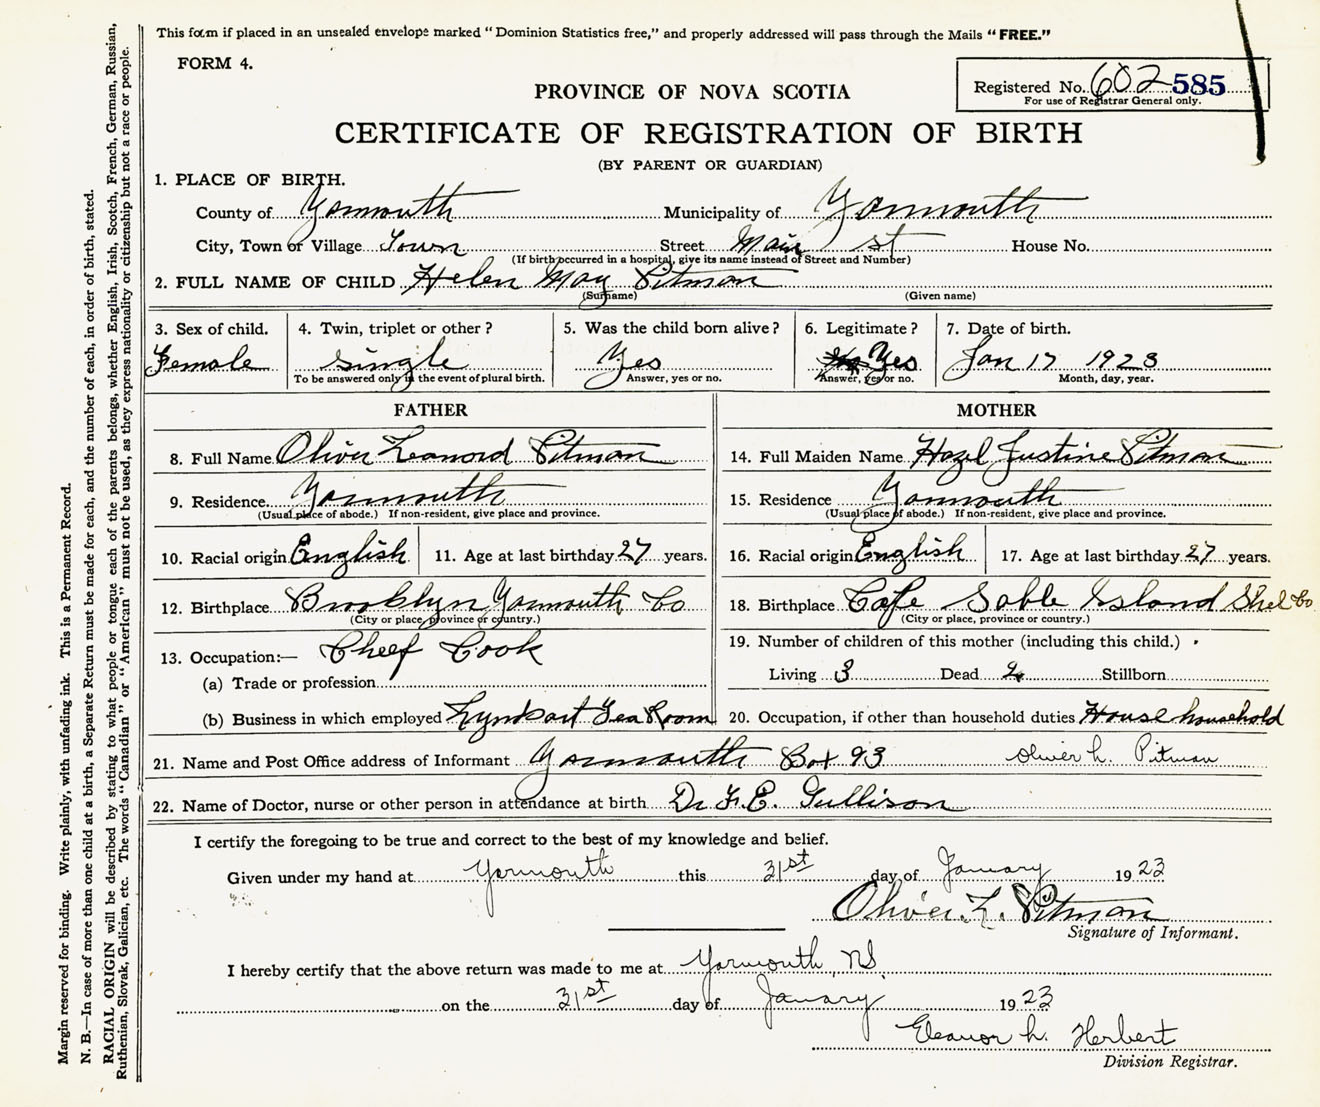 This form if placed in an unsealed envelope marked "Dominion Statistics free," and properly addressed will pass through the Mails "FREE."
FORM 4.
Registered No. 602 585
For use of Registrar General only.
PROVINCE OF NOVA SCOTIA
CERTIFICATE OF REGISTRATION OF BIRTH
(BY PARENT OR GUARDIAN)
1. PLACE OF BIRTH.
County of Yarmouth Municipality of Yarmouth
City, Town or Village Town Street Main St House No.
(If birth occurred in a hospital, give its name instead of Street and Number)
2. FULL NAME OF CHILD Helen May Pitman
(Surname) (Given name)
3. Sex of child. 4. Twin, triplet or other? 5. Was the child born alive? 6. Legitimate? 7. Date of birth.
Female single Yes Yes Jan 17 1923
To be answered only in the event of plural birth. Answer, yes or no. Answer, yes or no. Month, day, year.
FATHER MOTHER
8. Full Name Oliver Leanord Pitman 14. Full Maiden Name Hazel Justine Pitman
9. Residence Yarmouth 15. Residence Yarmouth
(Usual place of abode.) If non-resident, give place and province. (Usual place of abode.) If non-resident, give place and province.
10. Racial origin English 11. Age at last birthday 27 years. 16. Racial origin English 17. Age at last birthday 27 years.
12. Birthplace Brooklyn Yarmouth Co 18. Birthplace Cape Sable Island Shel Co
(City or place, province or country.) (City or place, province or country.)
13. Occupation:— Cheef Cook 19. Number of children of this mother (including this child.)
(a) Trade or profession Living 3 Dead 2 Stillborn
(b) Business in which employed Tea Room 20. Occupation, if other than household duties House household
21. Name and Post Office address of Informant Yarmouth Box 93 Oliver L. Pitman
22. Name of Doctor, nurse or other person in attendance at birth Dr F. E. Gullison
I certify the foregoing to be true and correct to the best of my knowledge and belief.
Given under my hand at Yarmouth this 31st day of January 1923
Oliver L. Pitman
Signature of Informant.
I hereby certify that the above return was made to me at Yarmouth, NS
on the 31st day of January 1923
Eleanor L. Herbert
Division Registrar.
Margin reserved for binding. Write plainly, with unfading ink. This is a Permanent Record.
N. B.—In case of more than one child at a birth, a Separate Return must be made for each, and the number of each, in order of birth, stated.
RACIAL ORIGIN will be described by stating to what people or tongue each of the parents belongs, whether English, Irish, Scotch, French, German, Russian,
Ruthenian, Slovak, Galician, etc. The words "Canadian" or "American" must not be used, as they express nationality or citizenship but not a race or people.